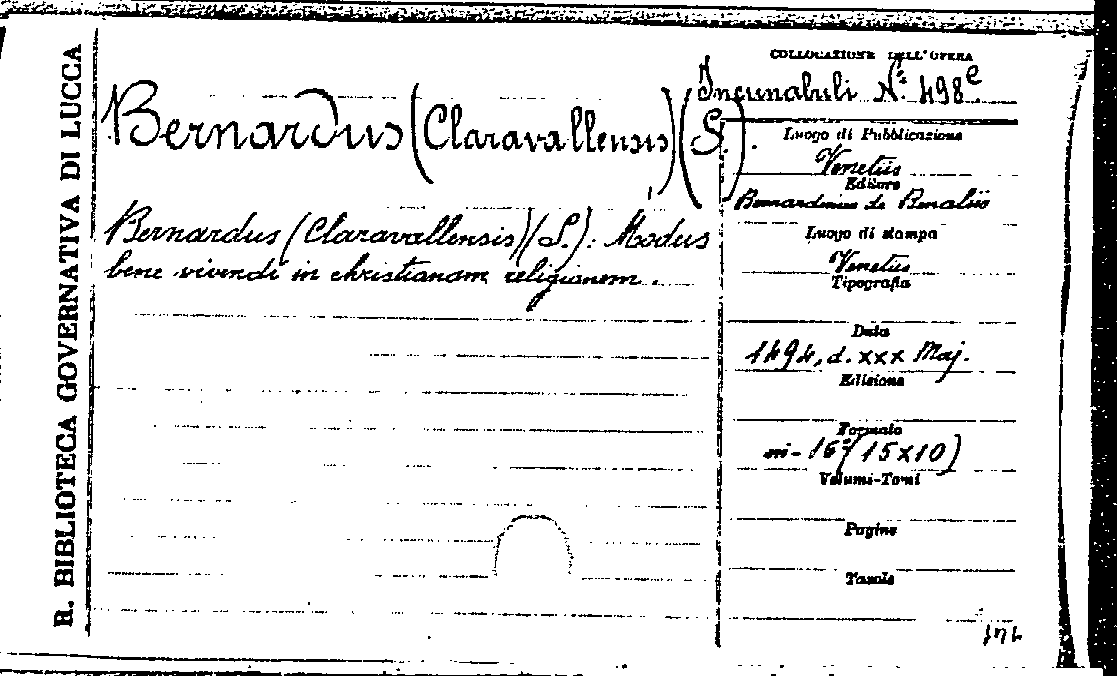 R. BIBLIOTECA GOVERNATIVA DI LUCCA
COLLOCAZIONE DELL'OPERA
Incunabuli N.º 498e
Bernardus (Claravallensis) (S.).
Bernardus (Claravallensis) (S.): Modus
bene vivendi in christianam religionem.
Luogo di Pubblicazione
Venetiis
Editore
Bernardinus de Benaliis
Luogo di stampa
Venetiis
Tipografia
Data
1494, d. xxx Maj.
Edizione
Formato
in-16º (15x10)
Volumi-Tomi
Pagine
Tavole